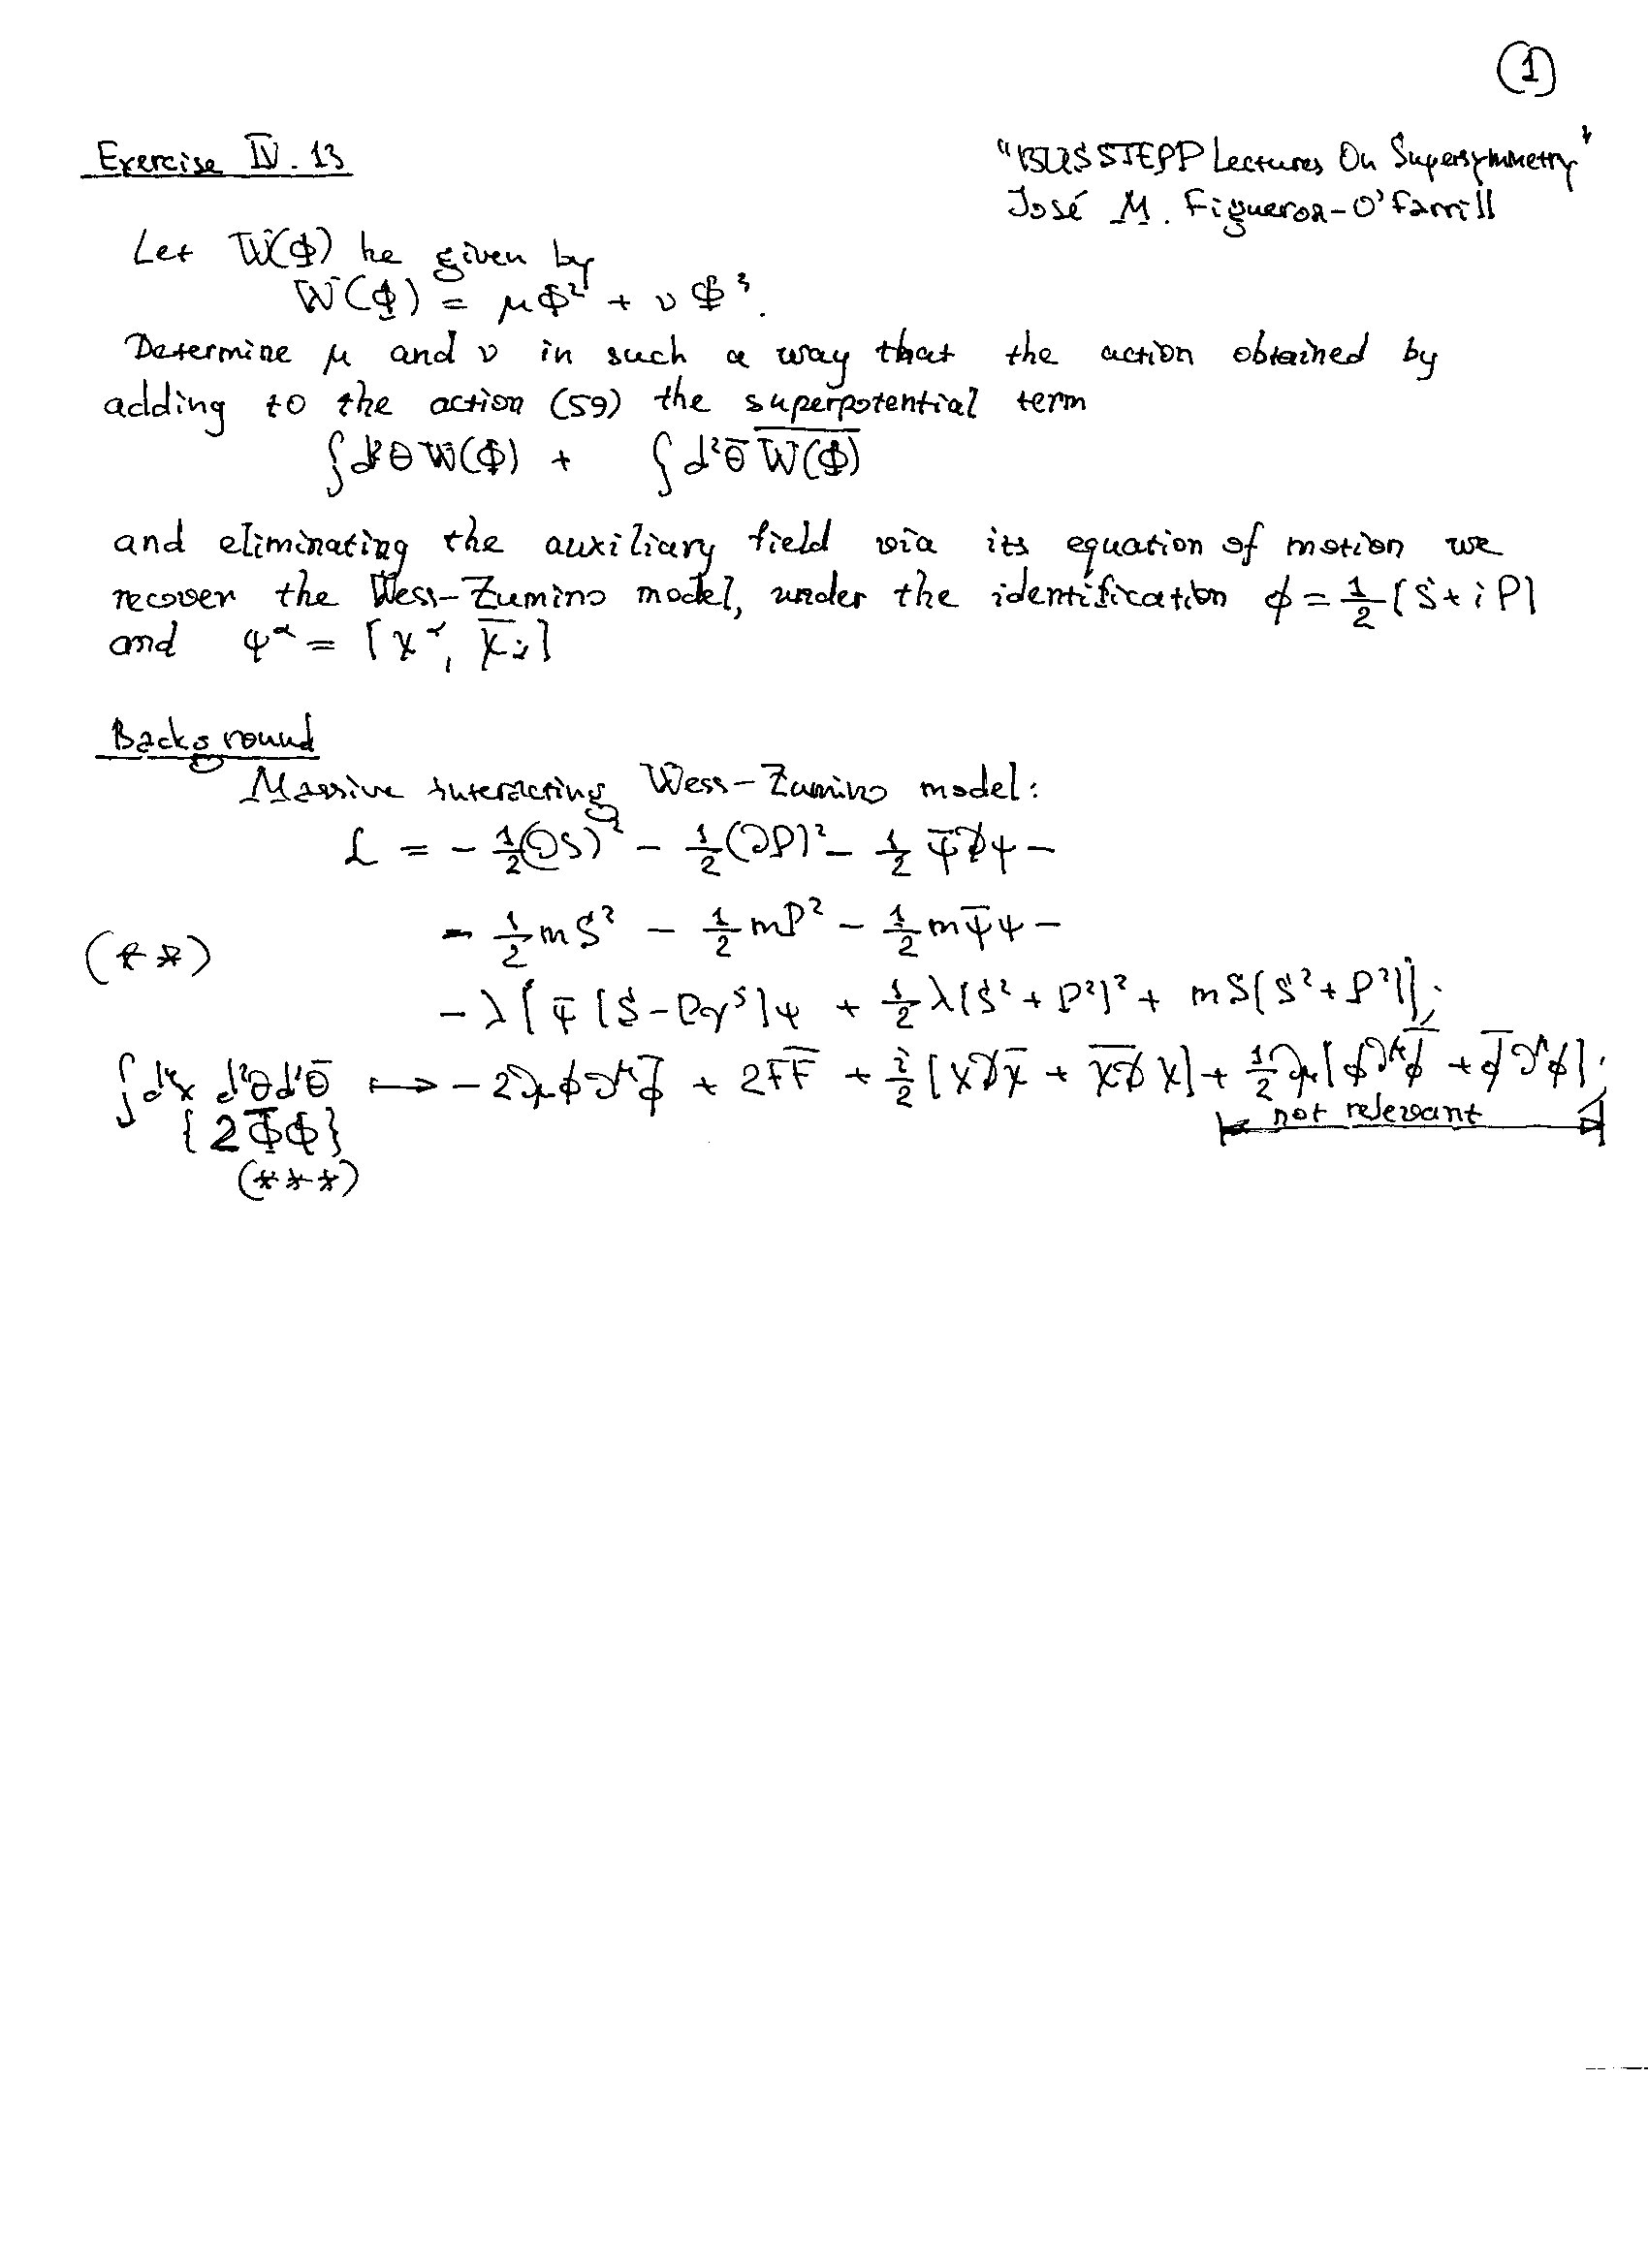 ①
Exercise IV. 13
"BUSSTEPP Lectures On Supersymmetry"
José M. Figueroa-O'Farrill
Let W(Φ) be given by
W(Φ) = μΦ² + νΦ³.
Determine μ and ν in such a way that the action obtained by
adding to the action (59) the superpotential term
∫d²θ W(Φ) + ∫d²θ̄ \overline{W(Φ)}
and eliminating the auxiliary field via its equation of motion we
recover the Wess-Zumino model, under the identification φ = 1/2 [S + iP]
and ψ^α = [χ^α, χ̄_α̇]
Background
Massive interacting Wess-Zumino model:
L = - 1/2 (∂S)² - 1/2 (∂P)² - 1/2 ψ̄∂̸ψ -
- 1/2 mS² - 1/2 mP² - 1/2 mψ̄ψ -
(**)
- λ [ψ̄ [S - Pγ⁵]ψ + 1/2 λ[S² + P²]² + mS[S² + P²]];
∫d⁴x d²θd²θ̄ ⟼ - 2∂_μφ∂^μφ̄ + 2FF̄ + i/2 [χ∂̸χ̄ + χ̄∂̸χ] + 1/2 ∂_μ[φ∂^μφ̄ + φ̄∂^μφ];
{2Φ̄Φ}
not relevant
(***)